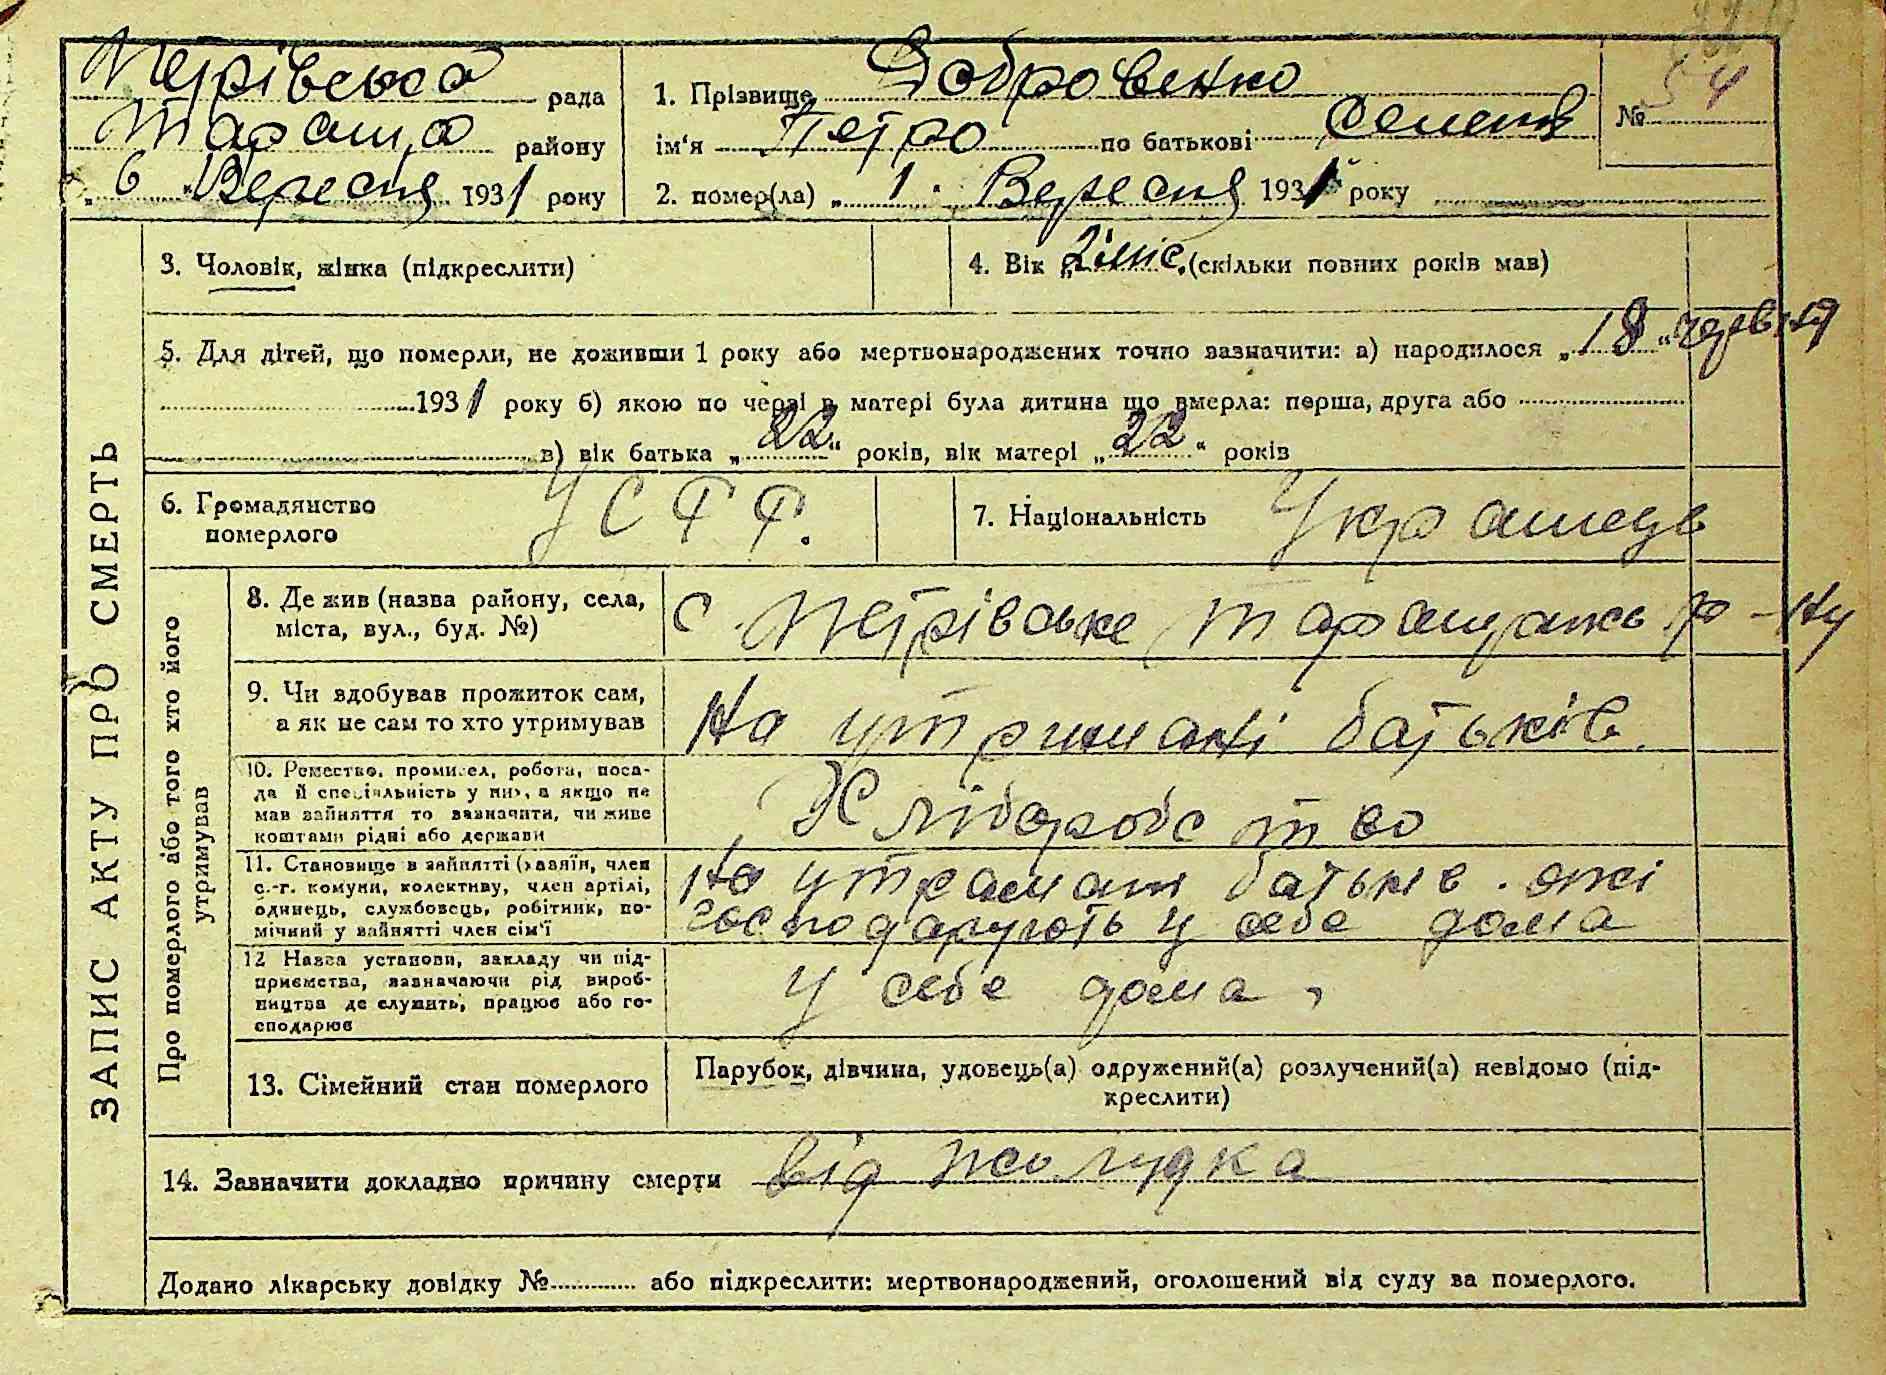 Петрівська рада
Тараща району
„6“ Вересня 1931 року
1. Прізвище Добровенко
ім'я Петро по батькові Семенів
2. помер(ла) „1“ Вересня 1931 року
№ 54
ЗАПИС АКТУ ПРО СМЕРТЬ
3. Чоловік, жінка (підкреслити)
4. Вік „2 міс.“ (скільки повних років мав)
5. Для дітей, що померли, не доживши 1 року або мертвонароджених точно зазначити: а) народилося „18“ червня
1931 року б) якою по черзі в матері була дитина що вмерла: перша, друга або
в) вік батька „22“ років, вік матері „22“ років
6. Громадянство
померлого
УСРР.
7. Національність Українець
Про померлого або того хто його
утримував
8. Де жив (назва району, села,
міста, вул., буд. №)
с. Петрівське Таращансь р-ну
9. Чи здобував прожиток сам,
а як не сам то хто утримував
На утриманні батьків.
10. Ремество, промисел, робота, поса-
да й спеціяльність у них, а якщо не
мав зайняття то зазначити, чи живе
коштами рідні або держави
Хліборобство
11. Становище в зайнятті (хазяїн, член
с.-г. комуни, колективу, член артілі,
одинець, службовець, робітник, по-
мічний у зайнятті член сім'ї
На утриманні батьків. які
господарують у себе дома
12 Назва установи, закладу чи під-
приємства, зазначаючи рід вироб-
ництва де служить, працює або го-
сподарює
У себе дома,
13. Сімейний стан померлого
Парубок, дівчина, удовець(а) одружений(а) розлучений(а) невідомо (під-
креслити)
14. Зазначити докладно причину смерти від жолудка
Додано лікарську довідку № або підкреслити: мертвонароджений, оголошений від суду за померлого.